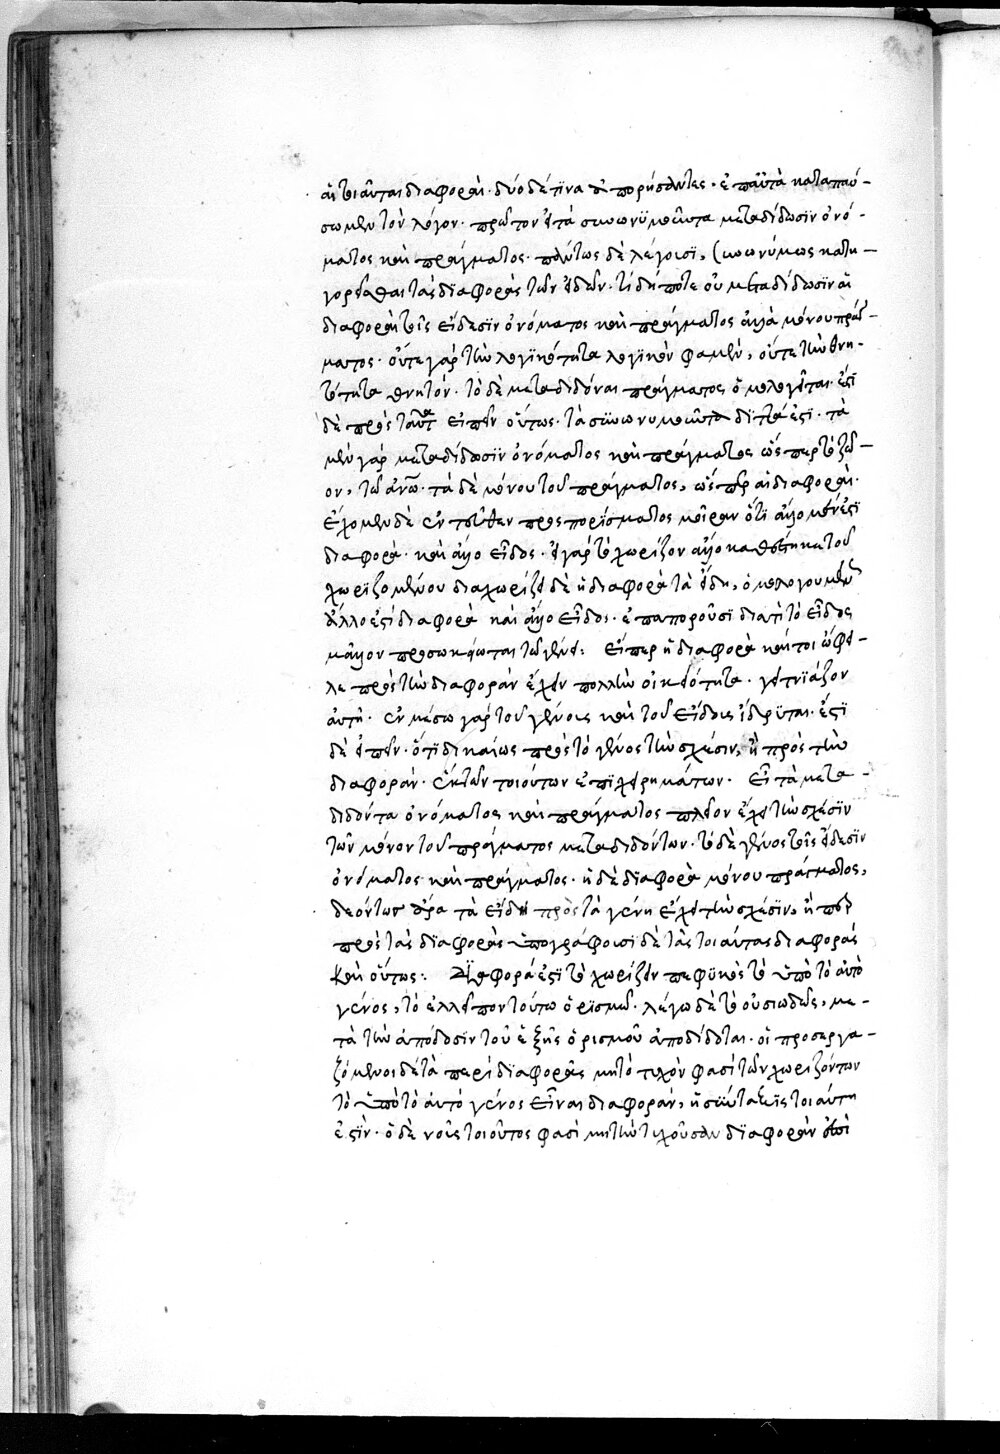 αἱ τοιαῦται διαφοραί· δύο δέ τινα ἀπορήσαντες· ἐπαῦτὰ καταπαύ-
σωμεν τὸν λόγον· πρῶτον εἰ τὰ συνωνυμοῦντα μεταδίδωσϊν ὀνό-
ματος καὶ πράγματος· πάντως δὲ λέγουσϊ, συνωνύμως κατη-
γορεῖσθαι τὰς διαφορὰς τῶν εἰδῶν· τί δή ποτε οὐ μεταδίδωσϊν αἱ
διαφοραὶ τοῖς εἴδεσϊν ὀνόματος καὶ πράγματος ἀλλὰ μόνου πράγ-
ματος· οὔτε γὰρ τὴν λογϊκότητα λογϊκόν φαμεν, οὔτε τὴν θνη-
τότητα θνητόν· τὸ δὲ μεταδιδόναι πράγματος ὁμολογεῖται· ἔστϊ
δὲ πρὸς ταῦτα εἰπεῖν οὕτως· τὰ συνωνυμοῦντα διττά ἐστϊ· τὰ
μὲν γὰρ μεταδίδωσϊν ὀνόματος καὶ πράγματος ὥσπερ τὸ ζῶ-
ον, τῶ ἀνῶ· τὰ δὲ μόνου τοῦ πράγματος, ὥσπερ αἱ διαφοραί·
ἔχομεν δὲ ἐντεῦθεν προςπορίσματος μοῖραν ὅτϊ ἄλλο μέν ἐστϊ
διαφορὰ· καὶ ἄλλο εἶδος· εἰ γὰρ τὸ χωρίζον ἄλλο καθέστηκε τοῦ
χωρϊζομένου διαχωρίζει δὲ ἡ διαφορὰ τὰ εἴδη, ὁμολογουμένως
ἄλλο ἐστὶ διαφορὰ καὶ ἄλλο εἶδος· ἐπαποροῦσϊ διατί τὸ εἶδος
μᾶλλον προσωκείωται τῶ γένει: εἴπερ ἡ διαφορὰ καίτοι ὤφει-
λε πρὸς τὴν διαφορὰν ἔχειν πολλὴν οἰκειότητα· γειτνϊάζον
αὐτῆ· ἐν μέσω γὰρ τοῦ γένους καὶ τοῦ εἴδους ἵδρυται· ἔστϊ
δὲ εἰπεῖν· ὅτϊ δικαίως πρὸς τὸ γένος τὴν σχέσιν, ἢ πρὸς τὴν
διαφοράν· ἐκ τῶν τοιούτων ἐπϊχειρημάτων· εἰ τὰ μετα-
διδόντα ὀνόματος καὶ πράγματος πλεῖον ἔχει τὴν σχέσϊν
τῶν μόνον τοῦ πράγματος μεταδιδόντων· τὸ δὲ γένος τοῖς εἴδεσϊν
ὀνόματος καὶ πράγματος· ἡ δὲ δϊαφορὰ μόνου πράγματος,
δεόντως ἄρα τὰ εἴδη πρὸς τὰ γένη ἔχει τὴν σχέσϊν, ἤπερ
πρὸς τὰς δϊαφοράς ὑπογράφουσϊ δὲ τὰς τοιαύτας διαφορὰς
καὶ οὕτως: Δϊαφορά ἐστϊ τὸ χωρίζειν πεφϋκὸς τὸ ὑπὸ τὸ αὐτὸ
γένος, τὸ ἐλλεῖπον τούτω ὁρϊσμῶ· λέγω δὲ τὸ οὐσιωδῶς, με-
τὰ τὴν ἀπόδοσϊν τοῦ ἑξῆς ὁρισμοῦ ἀποδίδοται· οἱ προσεργα-
ζόμενοι δέ τὰ περὶ δϊαφορᾶς μὴ τὸ τυχὸν φασί τῶν χωριζόντων
τὸ ὑπὸ τὸ αὐτὸ γένος εἶναι διαφοράν, ἡ σύνταξϊς τοιαύτη
ἐστϊν· ὁ δὲ νοῦς τοιοῦτος φασὶ μὴ τὴν τυχοῦσαν δϊαφορὰν